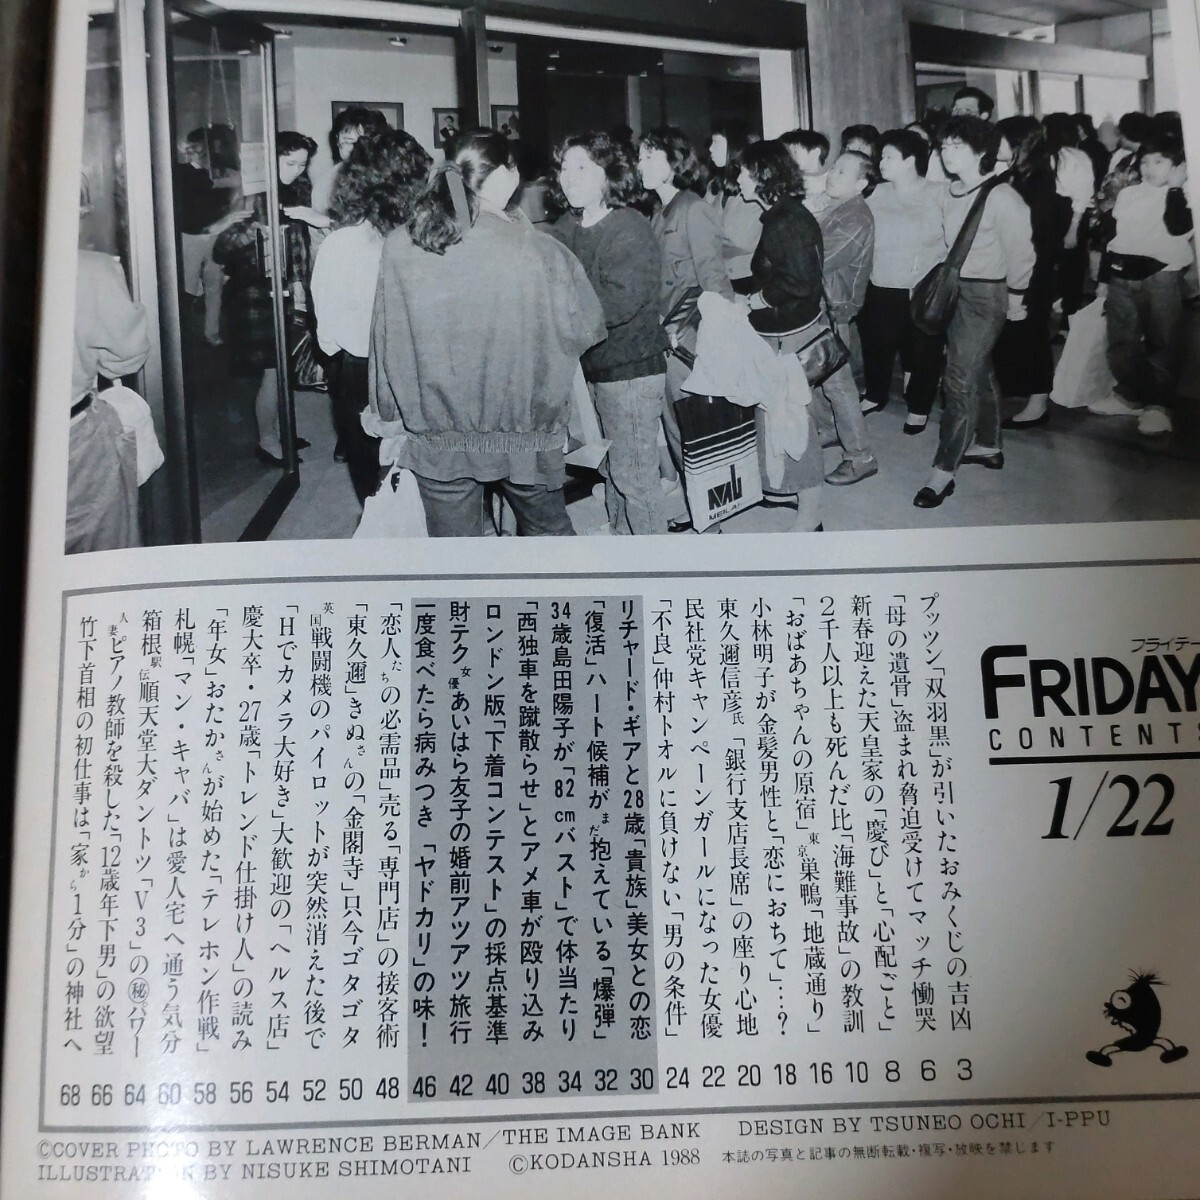 MEIKAI
フライデー
FRIDAY
CONTENTS
1/22
プッツン「双羽黒」が引いたおみくじの吉凶 3
「母の遺骨」盗まれ脅迫受けてマッチ慟哭 6
新春迎えた天皇家の「慶び」と「心配ごと」 8
2千人以上も死んだ比「海難事故」の教訓 10
「おばあちゃんの原宿」東京巣鴨「地蔵通り」 16
小林明子が金髪男性と「恋におちて」…? 18
東久邇信彦氏「銀行支店長席」の座り心地 20
民社党キャンペーンガールになった女優 22
「不良」仲村トオルに負けない「男の条件」 24
リチャード・ギアと28歳「貴族」美女との恋 30
「復活」ハート候補がまだ抱えている「爆弾」 32
34歳島田陽子が「82cmバスト」で体当たり 34
「西独車を蹴散らせ」とアメ車が殴り込み 38
ロンドン版「下着コンテスト」の採点基準 40
財テク女優あいはら友子の婚前アツアツ旅行 42
一度食べたら病みつき「ヤドカリ」の味! 46
「恋人たちの必需品」売る「専門店」の接客術 48
「東久邇」きぬさんの「金閣寺」只今ゴタゴタ 50
英国戦闘機のパイロットが突然消えた後で 52
「Hでカメラ大好き」大歓迎の「ヘルス店」 54
慶大卒・27歳「トレンド仕掛け人」の読み 56
「年女」おたかさんが始めた「テレホン作戦」 58
札幌「マン・キャバ」は愛人宅へ通う気分 60
箱根駅伝順天堂大ダントツ「V3」の㊙パワー 64
人妻ピアノ教師を殺した「12歳年下男」の欲望 66
竹下首相の初仕事は「家から1分」の神社へ 68
©COVER PHOTO BY LAWRENCE BERMAN/THE IMAGE BANK DESIGN BY TSUNEO OCHI/I-PPU
ILLUSTRATION BY NISUKE SHIMOTANI ©KODANSHA 1988 本誌の写真と記事の無断転載・複写・放映を禁じます